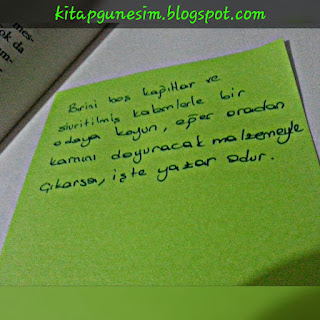 kitapgunesim.blogspot.com
mes-
ok da
Birini boş kağıtlar ve
sivritilmiş kalemlerle bir
odaya koyun, eğer oradan
karnını doyuracak malzemeyle
çıkarsa, işte yazar odur.